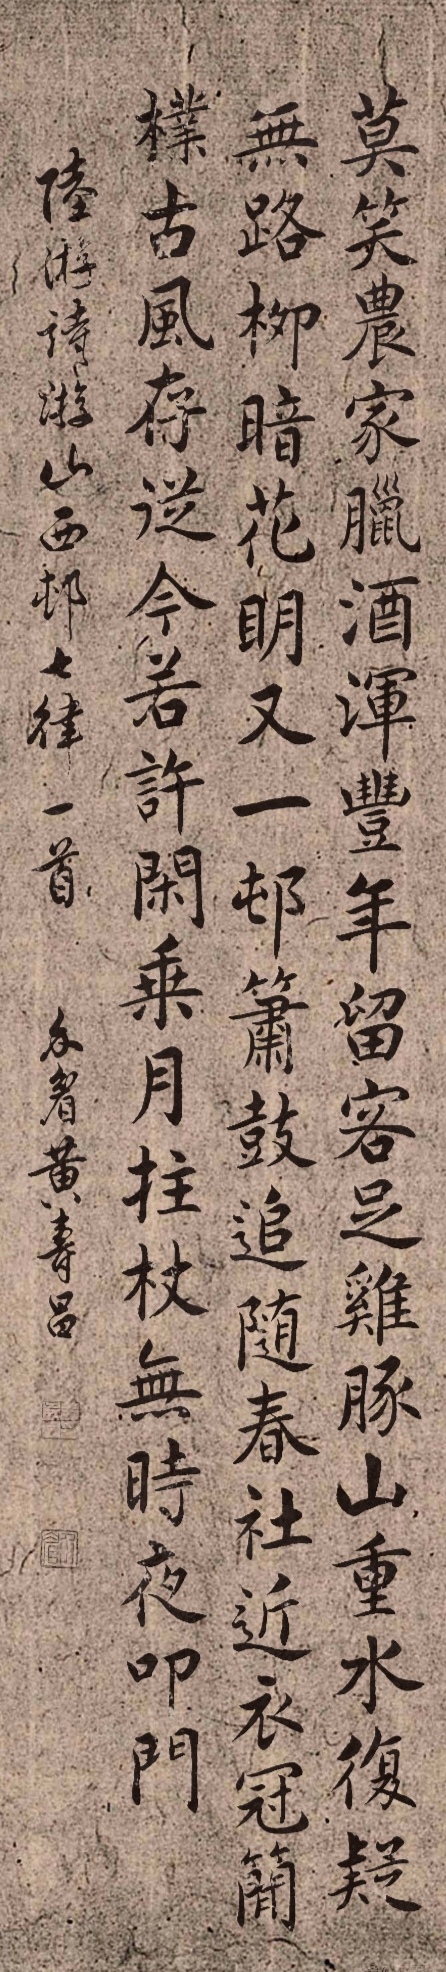 莫笑農家臘酒渾豐年留客足雞豚山重水復疑
無路柳暗花明又一邨簫鼓追隨春社近衣冠簡
樸古風存從今若許閑乘月拄杖無時夜叩門
陸游詩游山西邨七律一首 黃壽昌